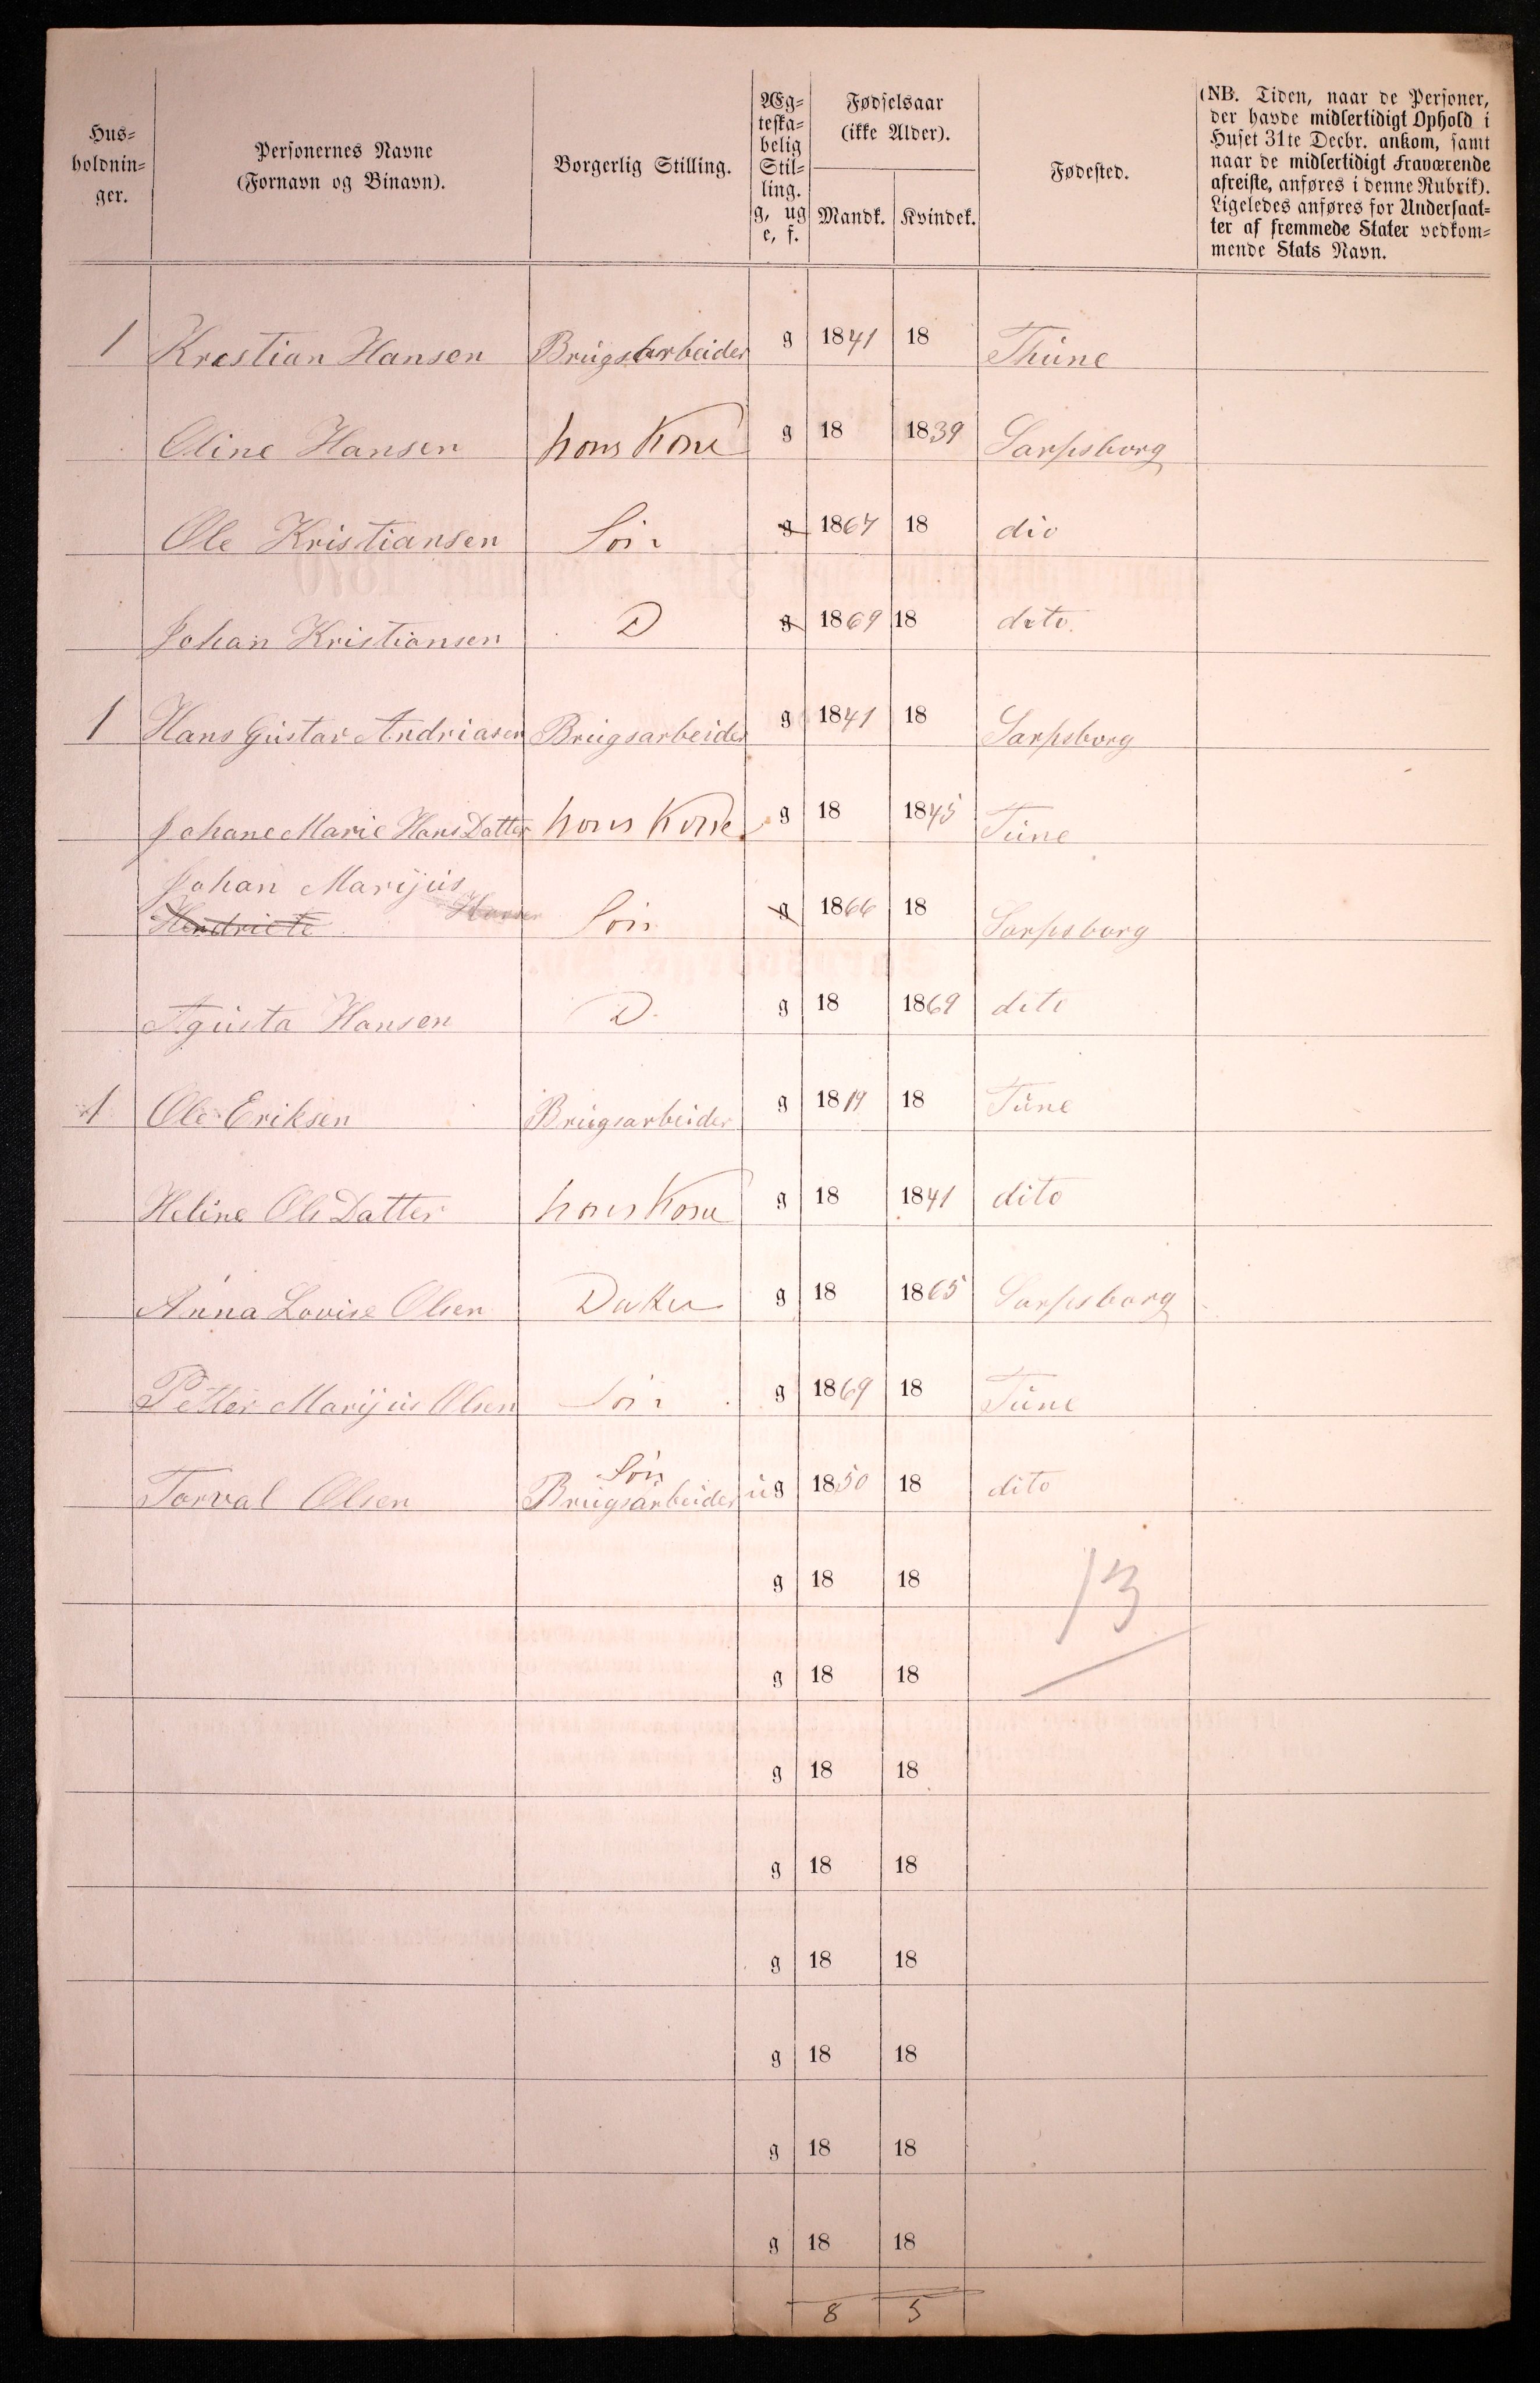 Hus=
holdnin=
ger.
Personernes Navne
(Fornavn og Binavn).
Borgerlig Stilling.
Æg=
teska=
belig
Stil=
ling.
g, ug
e, f.
Fødselsaar
(ikke Alder).
Mandk.
Kvindek.
Fødested.
(NB. Tiden, naar de Personer,
der havde midlertidigt Ophold i
Huset 31te Decbr. ankom, samt
naar de midlertidigt Fraværende
afreiste, anføres i denne Rubrik).
Ligeledes anføres for Undersaat=
ter af fremmede Stater vedkom=
mende Stats Navn.
1 Krestian Hansen Brügsarbeider g 1841 18 Thüne
Oline Hansen hans Kone g 18 1839 Sarpsborg
Ole Kristiansen Søn g 1867 18 dio
Johan Kristiansen D g 1869 18 dito
1 Hans Güstav Andriasen Brügsarbeider g 1841 18 Sarpsborg
Johane Marie Hans Datter hans Kone g 18 1845 Tüne
Johan Marijüs
Hendriete Hansen Søn g 1866 18 Sarpsborg
Agüsta Hansen D. g 18 1869 dito
1 Ole Eriksen Brügsarbeider g 1819 18 Tüne
Heline Ols Datter hans Kone g 18 1841 dito
Anna Lovise Olsen Datter g 18 1865 Sarpsborg
Petter Marijüs Olsen Søn g 1869 18 Tüne
Søn
Torval Olsen Brügsarbeider üg 1850 18 dito
g 18 18
13
g 18 18
g 18 18
g 18 18
g 18 18
g 18 18
g 18 18
g 18 18
8 5